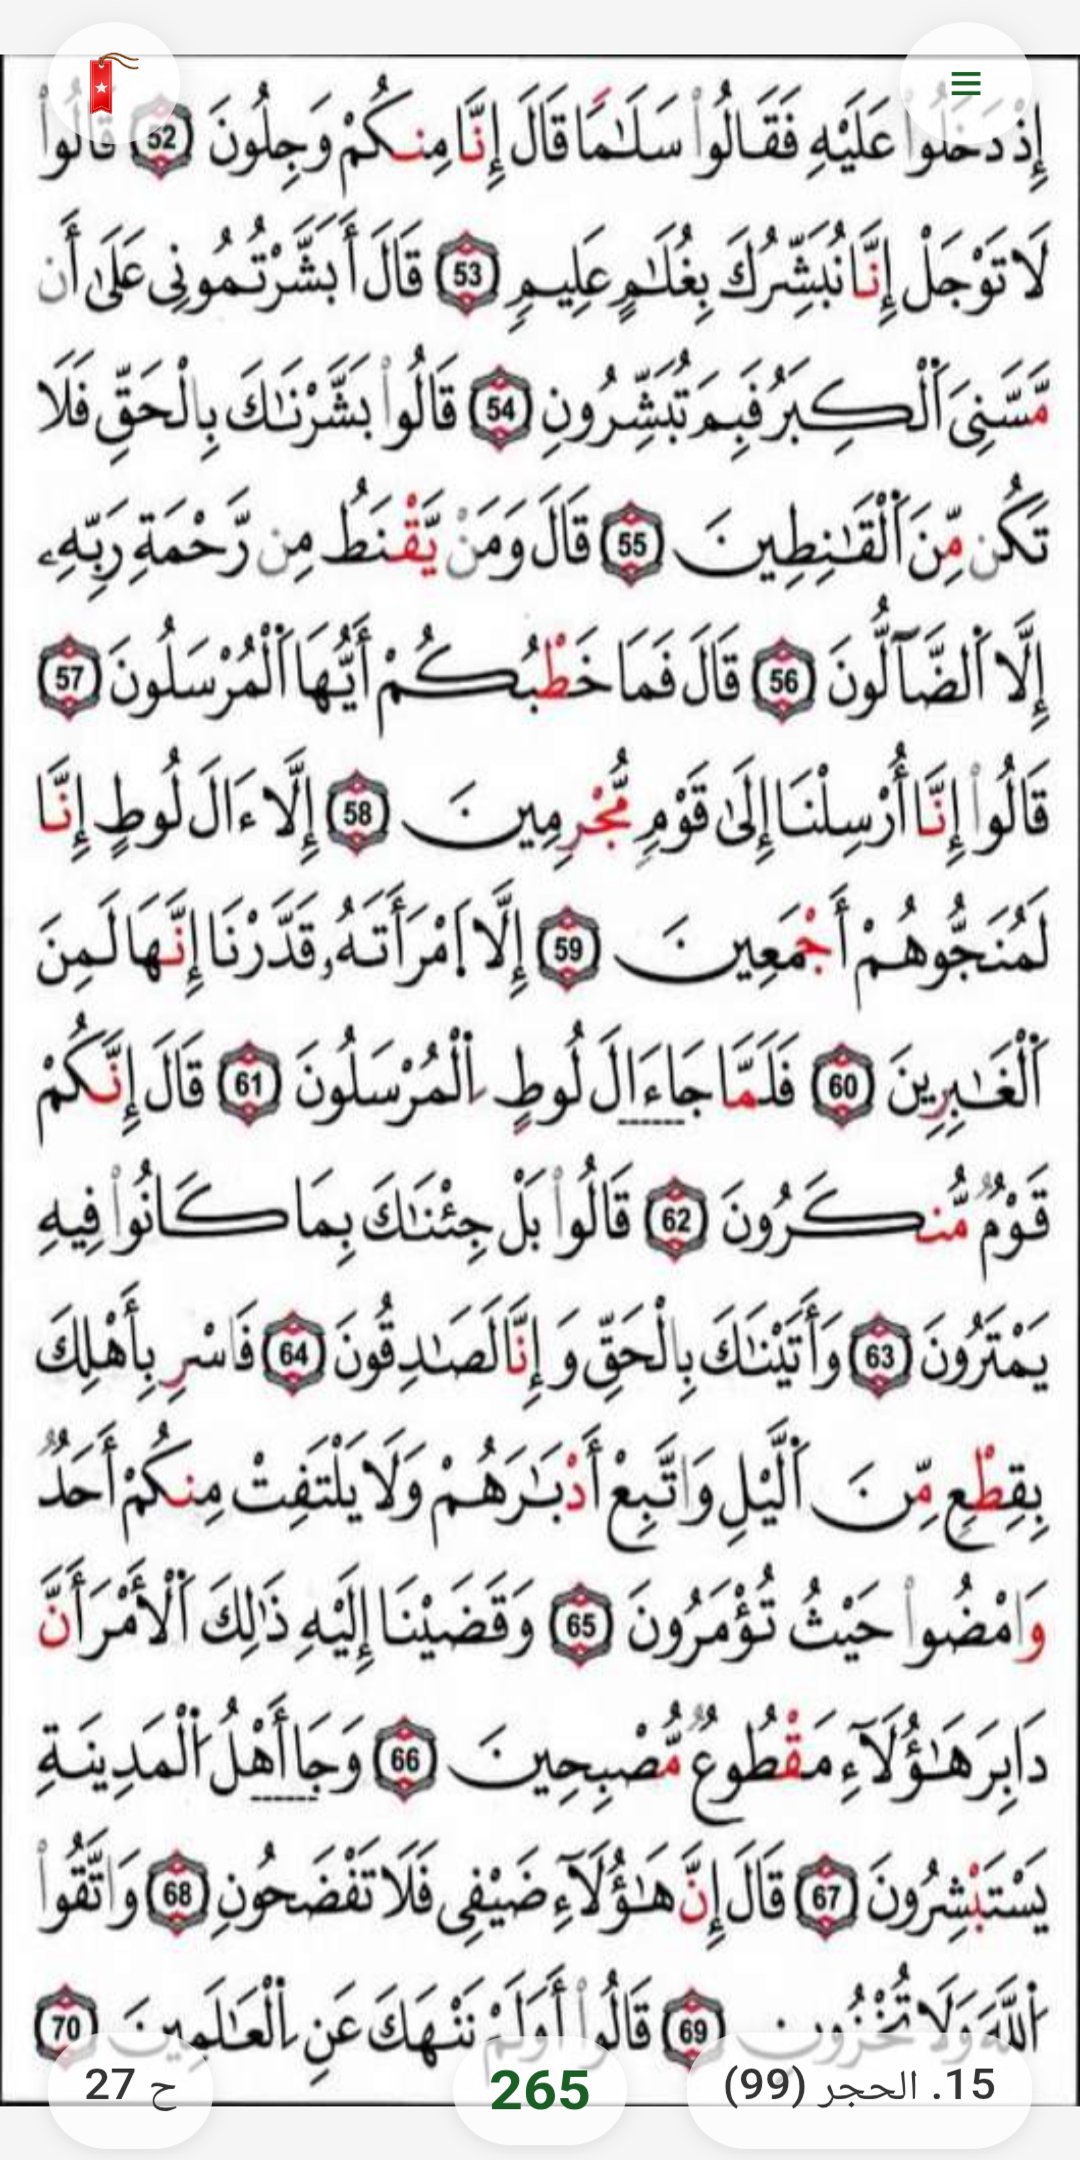 إِذْ دَخَلُوا۟ عَلَيْهِ فَقَالُوا۟ سَلَٰمًا قَالَ إِنَّا مِنكُمْ وَجِلُونَ 52 قَالُوا۟
لَا تَوْجَلْ إِنَّا نُبَشِّرُكَ بِغُلَٰمٍ عَلِيمٍ 53 قَالَ أَبَشَّرْتُمُونِى عَلَىٰ أَن
مَّسَّنِىَ ٱلْكِبَرُ فَبِمَ تُبَشِّرُونِ 54 قَالُوا۟ بَشَّرْنَٰكَ بِالْحَقِّ فَلَا
تَكُن مِّنَ ٱلْقَٰنِطِينَ 55 قَالَ وَمَنْ يَّقْنَطُ مِن رَّحْمَةِ رَبِّهِۦ
إِلَّا ٱلضَّآلُّونَ 56 قَالَ فَمَا خَطْبُكُمْ أَيُّهَا ٱلْمُرْسَلُونَ 57
قَالُوا۟ إِنَّا أُرْسِلْنَا إِلَىٰ قَوْمٍ مُّجْرِمِينَ 58 إِلَّا ءَالَ لُوطٍ إِنَّا
لَمُنَجُّوهُمْ أَجْمَعِينَ 59 إِلَّا ٱمْرَأَتَهُۥ قَدَّرْنَا إِنَّهَا لَمِنَ
ٱلْغَٰبِرِينَ 60 فَلَمَّا جَاءَالَ لُوطٍ ٱلْمُرْسَلُونَ 61 قَالَ إِنَّكُمْ
قَوْمٌ مُّنكَرُونَ 62 قَالُوا۟ بَلْ جِئْنَٰكَ بِمَا كَانُوا۟ فِيهِ
يَمْتَرُونَ 63 وَأَتَيْنَٰكَ بِالْحَقِّ وَإِنَّا لَصَٰدِقُونَ 64 فَاسْرِ بِأَهْلِكَ
بِقِطْعٍ مِّنَ ٱلَّيْلِ وَاتَّبِعْ أَدْبَٰرَهُمْ وَلَا يَلْتَفِتْ مِنكُمْ أَحَدٌ
وَامْضُوا۟ حَيْثُ تُؤْمَرُونَ 65 وَقَضَيْنَا إِلَيْهِ ذَٰلِكَ ٱلْأَمْرَ أَنَّ
دَابِرَ هَٰؤُلَآءِ مَقْطُوعٌ مُّصْبِحِينَ 66 وَجَا أَهْلُ ٱلْمَدِينَةِ
يَسْتَبْشِرُونَ 67 قَالَ إِنَّ هَٰؤُلَآءِ ضَيْفِى فَلَا تَفْضَحُونِ 68 وَاتَّقُوا۟
ٱللَّهَ وَلَا تُخْزُونِ 69 قَالُوا۟ أَوَلَمْ نَنْهَكَ عَنِ ٱلْعَٰلَمِينَ 70
15. الحجر (99)
265
ح 27